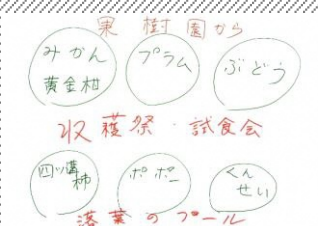 果樹園から
みかん
黄金柑
プラム
ぶどう
収穫祭・試食会
四ツ溝
柿
ポポー
くん
せい
落葉のプール